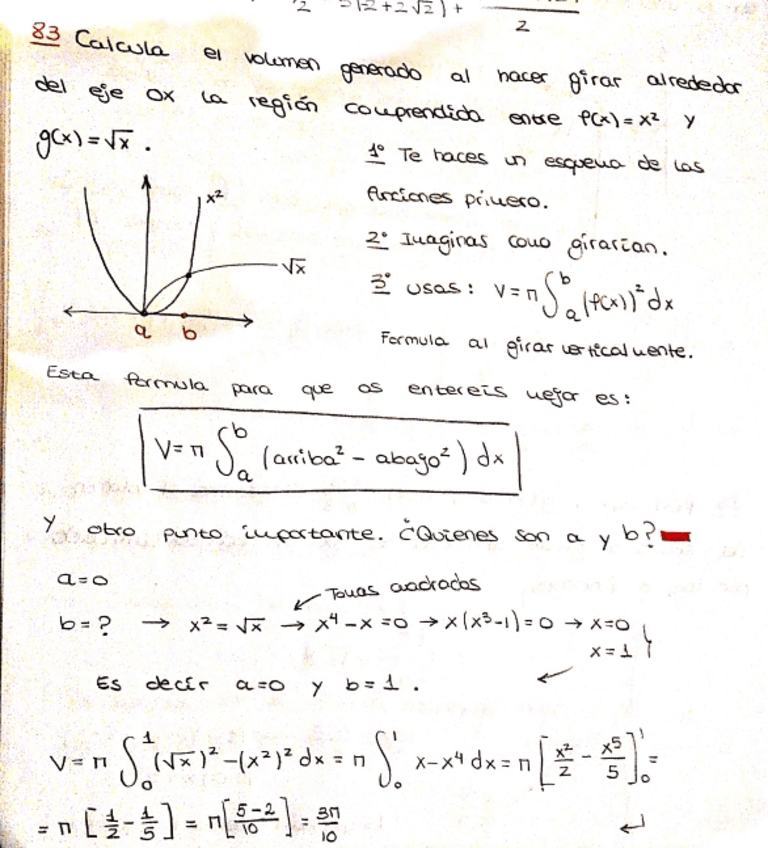 2
83 Calcula el volumen generado al hacer girar alrededor
del eje OX la región comprendida entre f(x) = x² y
g(x) = √x .
1º Te haces un esquema de las
funciones primero.
2º Imaginas como girarian.
3º usas: V = π ∫ₐᵇ (f(x))² dx
Formula al girar verticalmente.
x²
√x
a b
Esta formula para que os entereis mejor es:
V = π ∫ₐᵇ (arriba² - abajo²) dx
Y otro punto importante. ¿Quienes son a y b?
a = 0
Tomas cuadrados
b = ? → x² = √x → x⁴ - x = 0 → x(x³ - 1) = 0 → x = 0
x = 1
Es decir a = 0 y b = 1 .
V = π ∫₀¹ (√x)² - (x²)² dx = π ∫₀¹ x - x⁴ dx = π [x²/2 - x⁵/5]₀¹ =
= π [1/2 - 1/5] = π [5-2/10] = 3π/10